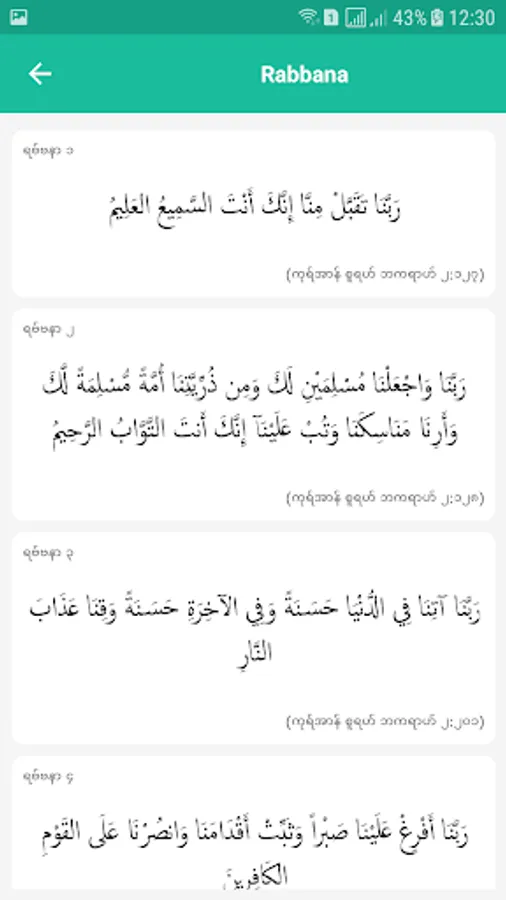 1 43% 12:30
Rabbana
ရဗ်ဗနာ ၁
رَبَّنَا تَقَبَّلْ مِنَّا إِنَّكَ أَنْتَ السَّمِيعُ العَلِيمُ
(ကုရ်အာန် စူရဟ် ဘကရာဟ် ၂:၁၂၇)
ရဗ်ဗနာ ၂
رَبَّنَا وَاجْعَلْنَا مُسْلِمَيْنِ لَكَ وَمِن ذُرِّيَّتِنَا أُمَّةً مُّسْلِمَةً لَّكَ
وَأَرِنَا مَنَاسِكَنَا وَتُبْ عَلَيْنَآ إِنَّكَ أَنتَ التَّوَّابُ الرَّحِيمُ
(ကုရ်အာန် စူရဟ် ဘကရာဟ် ၂:၁၂၈)
ရဗ်ဗနာ ၃
رَبَّنَا آتِنَا فِي الدُّنْيَا حَسَنَةً وَفِي الآخِرَةِ حَسَنَةً وَقِنَا عَذَابَ
النَّارِ
(ကုရ်အာန် စူရဟ် ဘကရာဟ် ၂:၂၀၁)
ရဗ်ဗနာ ၄
رَبَّنَا أَفْرِغْ عَلَيْنَا صَبْراً وَثَبِّتْ أَقْدَامَنَا وَانصُرْنَا عَلَى القَوْمِ
الكَافِرِينَ